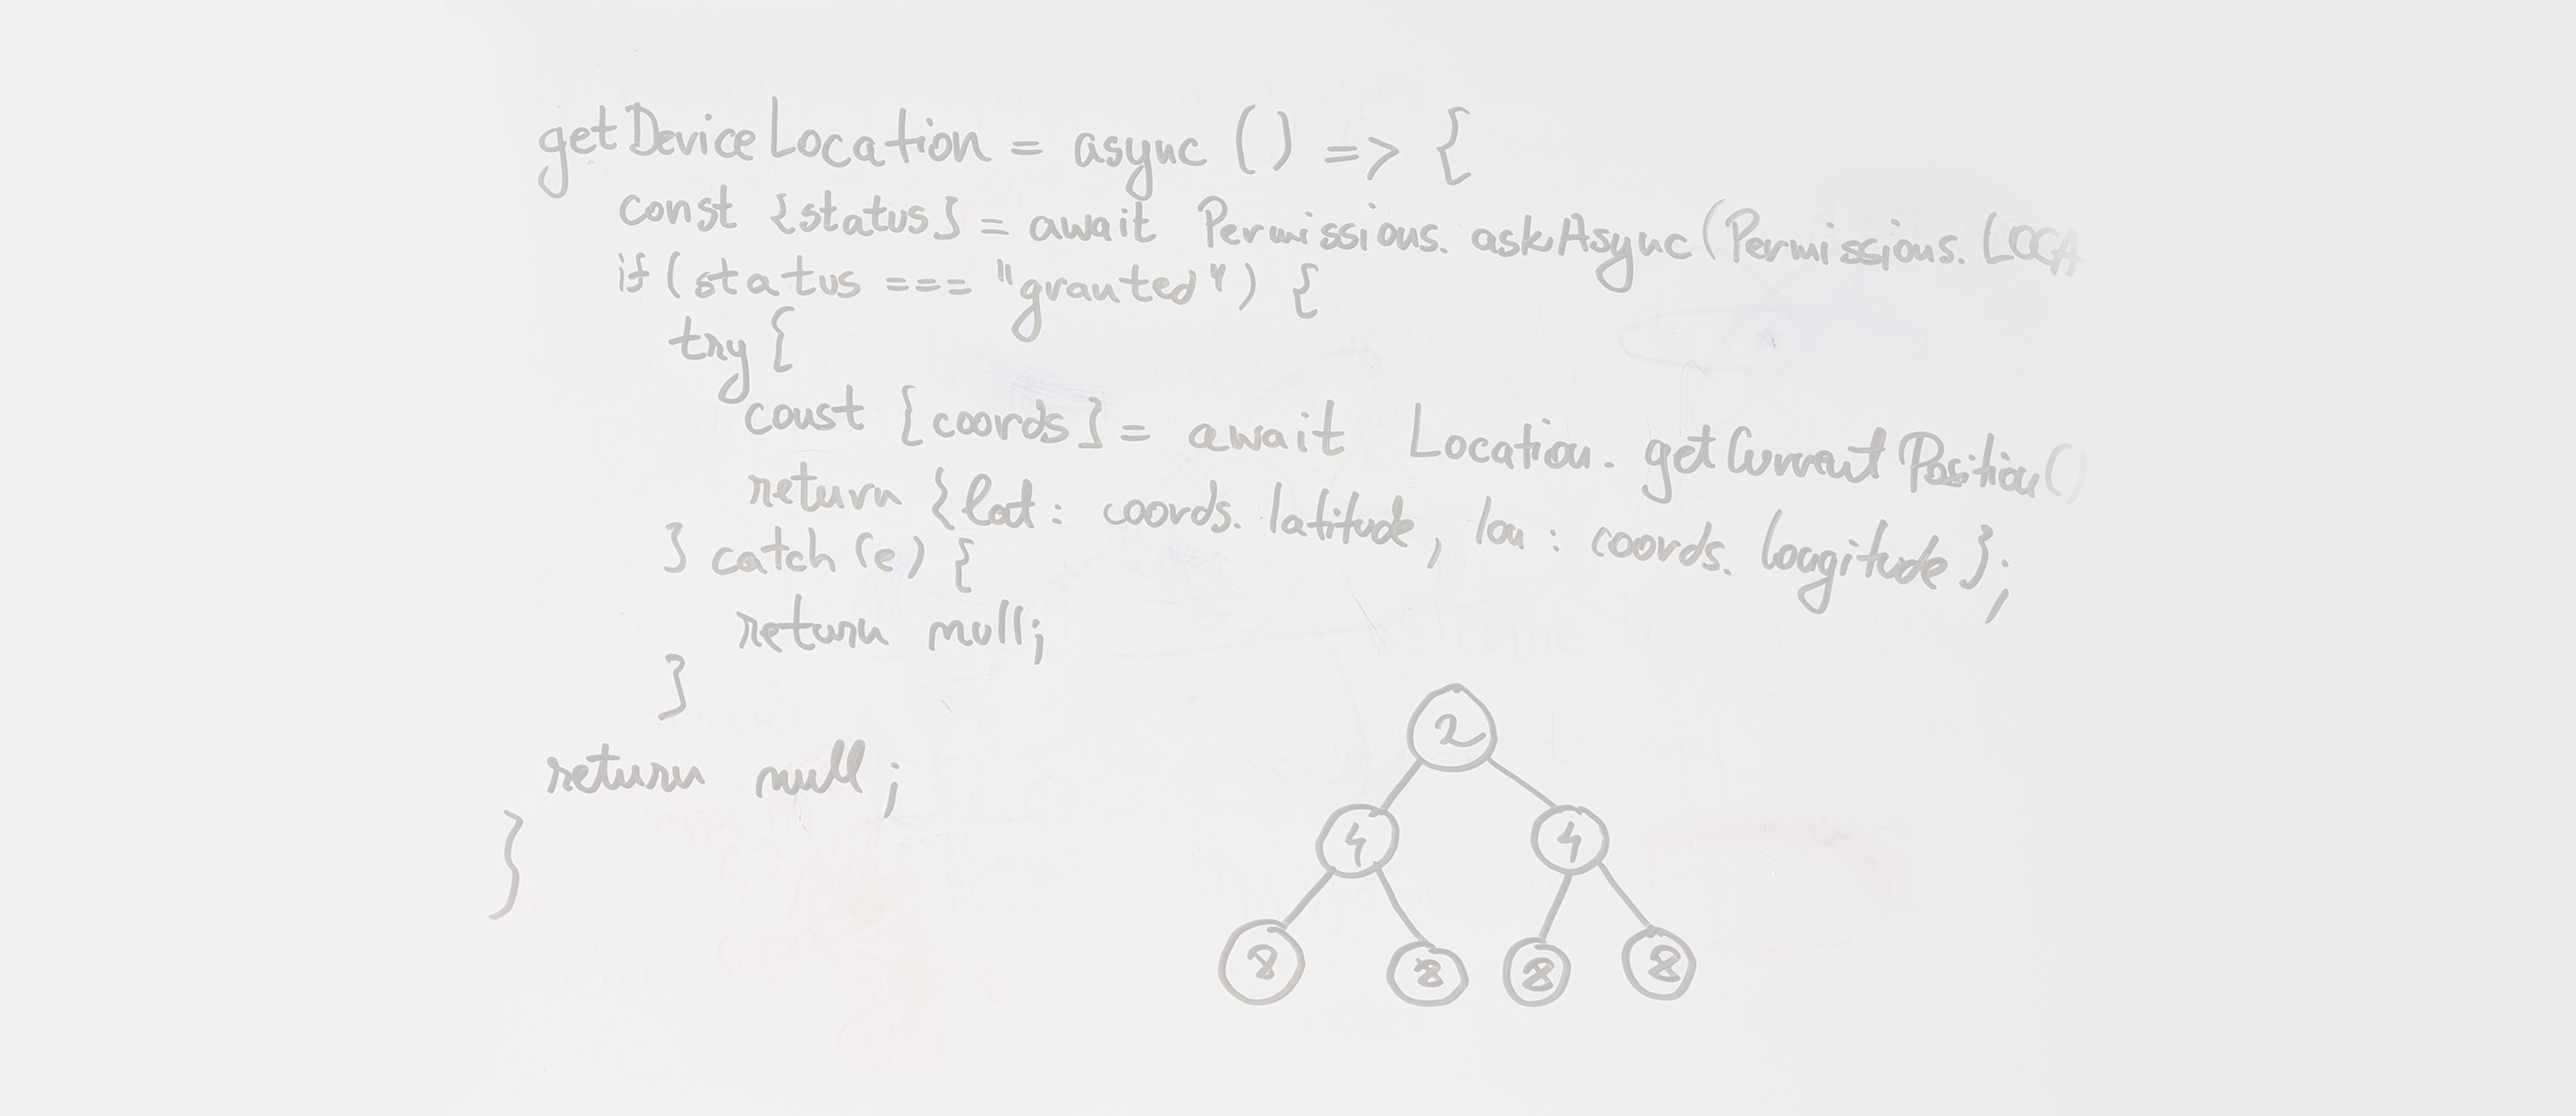 getDeviceLocation = async () => {
const {status} = await Permissions. askAsync(Permissions. LOCA
if (status === "granted") {
try {
const {coords} = await Location. getCurrentPosition()
return {lat: coords. latitude, lon: coords. longitude};
} catch (e) {
return null;
}
return null;
}
2
4 4
8 8 8 8